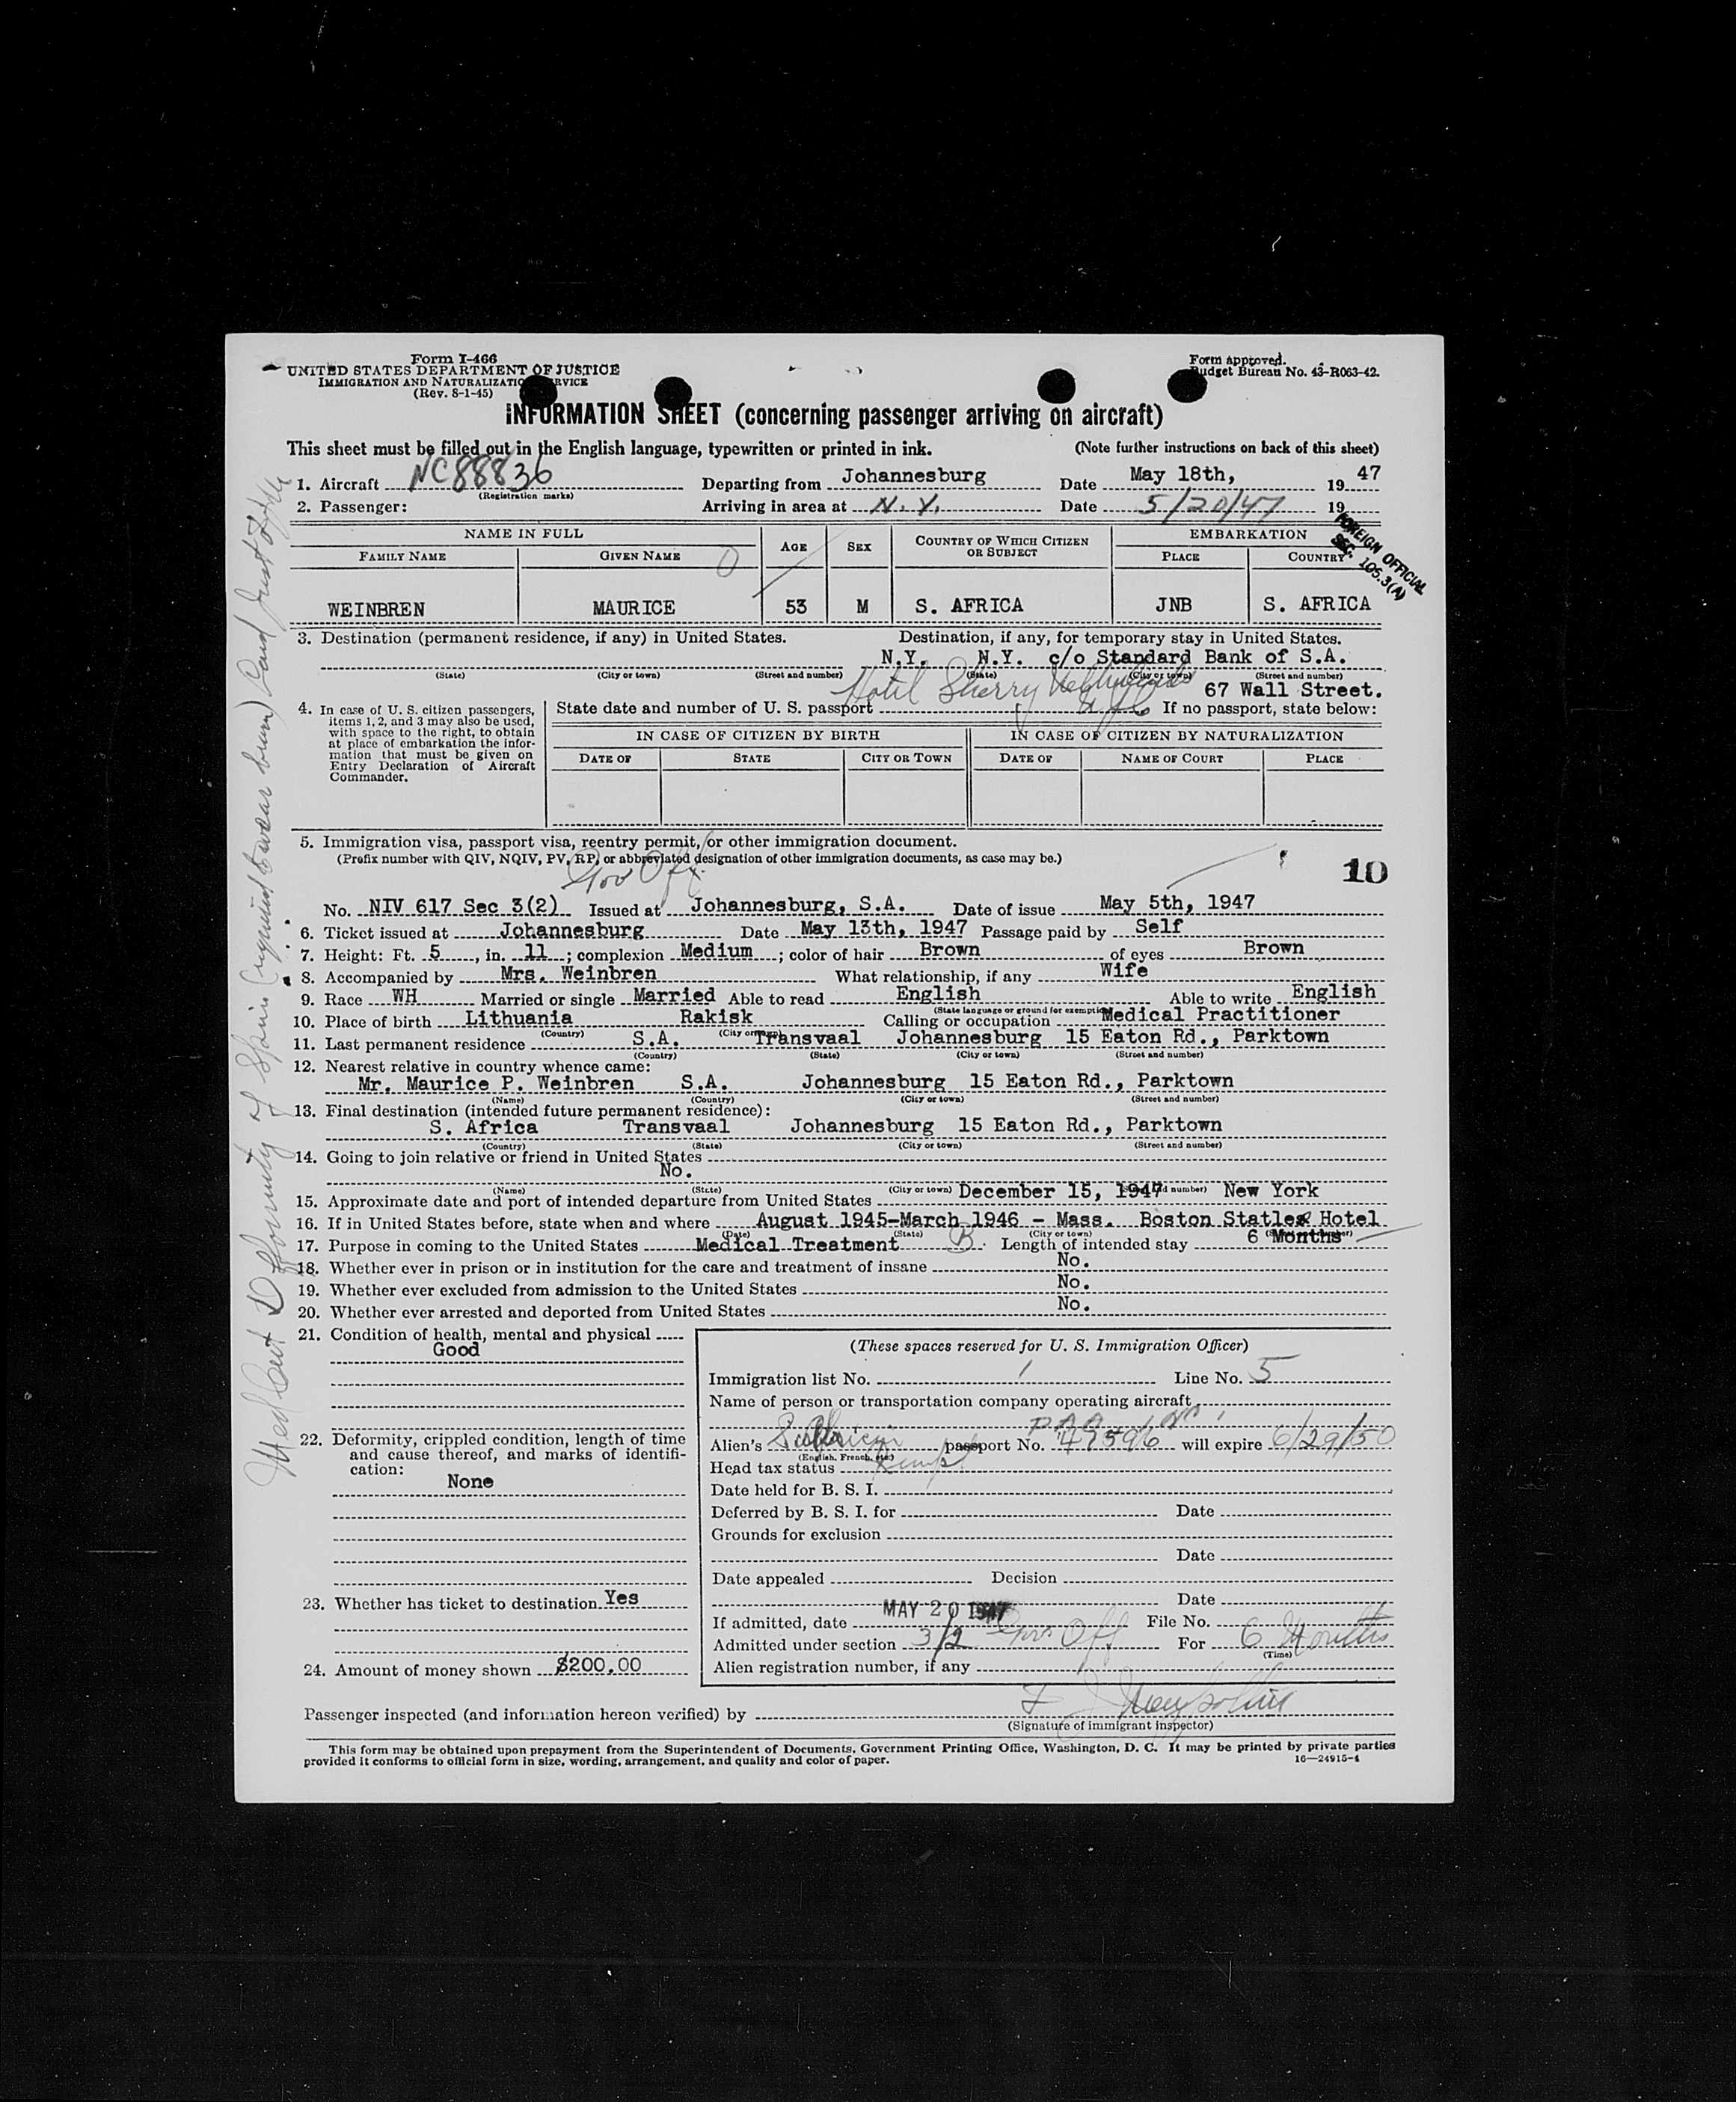 Form I-466
UNITED STATES DEPARTMENT OF JUSTICE
IMMIGRATION AND NATURALIZATION SERVICE
(Rev. 8-1-45)
Form approved.
Budget Bureau No. 43-R063-42.
INFORMATION SHEET (concerning passenger arriving on aircraft)
This sheet must be filled out in the English language, typewritten or printed in ink. (Note further instructions on back of this sheet)
1. Aircraft NC88836 Departing from Johannesburg Date May 18th, 1947
(Registration marks)
2. Passenger: Arriving in area at N.Y. Date 5/20/47 19
FOREIGN OFFICIAL
SEC. 105.3(A)
NAME IN FULL AGE SEX COUNTRY OF WHICH CITIZEN OR SUBJECT EMBARKATION
FAMILY NAME GIVEN NAME PLACE COUNTRY
WEINBREN MAURICE 53 M S. AFRICA JNB S. AFRICA
3. Destination (permanent residence, if any) in United States. Destination, if any, for temporary stay in United States.
N.Y. N.Y. c/o Standard Bank of S.A.
(State) (City or town) (Street and number) (State) (City or town) (Street and number)
Hotel Sherry 67 Wall Street.
4. In case of U. S. citizen passengers, items 1, 2, and 3 may also be used, with space to the right, to obtain at place of embarkation the information that must be given on Entry Declaration of Aircraft Commander.
State date and number of U. S. passport If no passport, state below:
IN CASE OF CITIZEN BY BIRTH IN CASE OF CITIZEN BY NATURALIZATION
DATE OF STATE CITY OR TOWN DATE OF NAME OF COURT PLACE
5. Immigration visa, passport visa, reentry permit, or other immigration document.
(Prefix number with QIV, NQIV, PV, RP, or abbreviated designation of other immigration documents, as case may be.)
Gov Off. 10
No. NIV 617 Sec 3(2) Issued at Johannesburg, S.A. Date of issue May 5th, 1947
6. Ticket issued at Johannesburg Date May 13th, 1947 Passage paid by Self
7. Height: Ft. 5, in. 11; complexion Medium; color of hair Brown of eyes Brown
8. Accompanied by Mrs. Weinbren What relationship, if any Wife
9. Race WH Married or single Married Able to read English Able to write English
(State language or ground for exemption)
10. Place of birth Lithuania Rakisk Calling or occupation Medical Practitioner
(Country) (City or town)
11. Last permanent residence S.A. Transvaal Johannesburg 15 Eaton Rd., Parktown
(Country) (State) (City or town) (Street and number)
12. Nearest relative in country whence came:
Mr. Maurice P. Weinbren S.A. Johannesburg 15 Eaton Rd., Parktown
(Name) (Country) (City or town) (Street and number)
13. Final destination (intended future permanent residence):
S. Africa Transvaal Johannesburg 15 Eaton Rd., Parktown
(Country) (State) (City or town) (Street and number)
14. Going to join relative or friend in United States
No.
(Name) (State) (City or town) (Street and number)
15. Approximate date and port of intended departure from United States December 15, 1947 New York
16. If in United States before, state when and where August 1945-March 1946 - Mass. Boston Statler Hotel
(Date) (State) (City or town) (Street and number)
17. Purpose in coming to the United States Medical Treatment B Length of intended stay 6 Months
18. Whether ever in prison or in institution for the care and treatment of insane No.
19. Whether ever excluded from admission to the United States No.
20. Whether ever arrested and deported from United States No.
21. Condition of health, mental and physical
Good
22. Deformity, crippled condition, length of time and cause thereof, and marks of identification:
None
23. Whether has ticket to destination Yes
24. Amount of money shown $200.00
(These spaces reserved for U. S. Immigration Officer)
Immigration list No. 1 Line No. 5
Name of person or transportation company operating aircraft
PAA
Alien's passport No. 47596 will expire 6/29/50
(English, French, etc.)
Head tax status
Date held for B. S. I.
Deferred by B. S. I. for Date
Grounds for exclusion
Date
Date appealed Decision
Date
If admitted, date MAY 20 1947 File No.
Admitted under section 3/2 Gov Off For 6 Months
(Time)
Alien registration number, if any
Passenger inspected (and information hereon verified) by
(Signature of immigrant inspector)
This form may be obtained upon prepayment from the Superintendent of Documents, Government Printing Office, Washington, D. C. It may be printed by private parties
provided it conforms to official form in size, wording, arrangement, and quality and color of paper. 16—24915-1
Med Cert Deformity of Spine